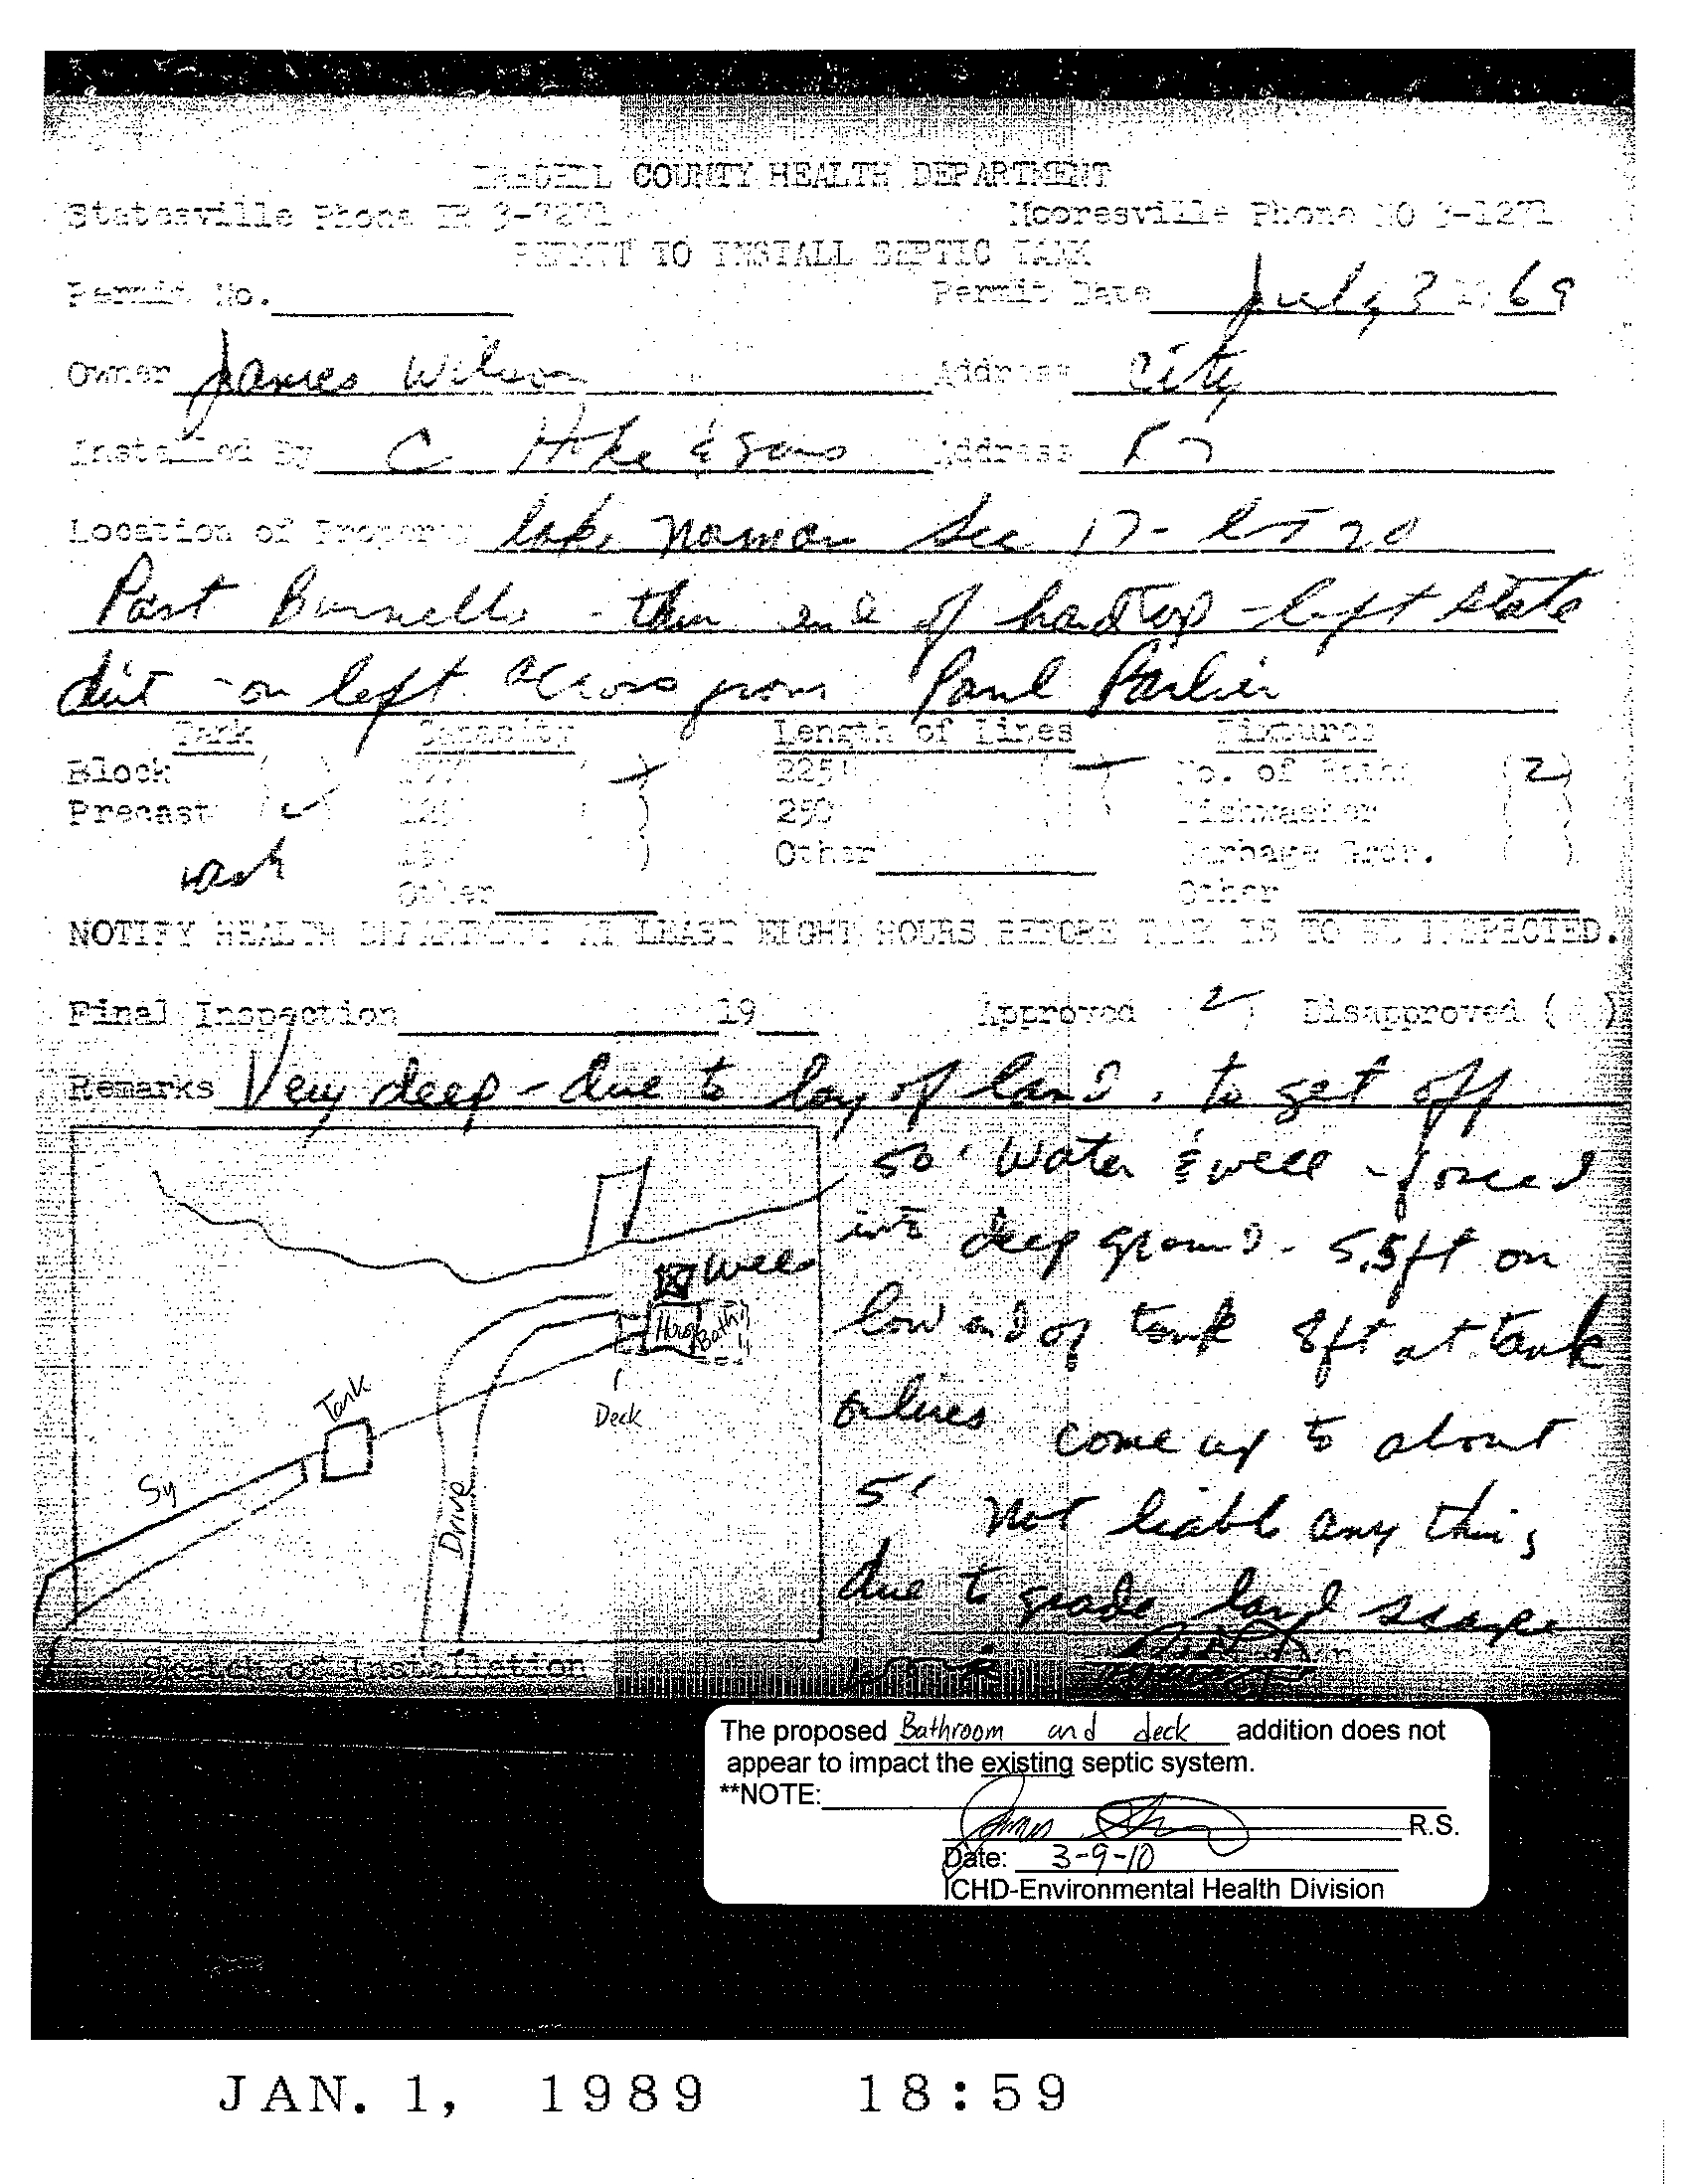 IREDELL COUNTY HEALTH DEPARTMENT
Statesville Phone TR 3-7271 Mooresville Phone NO 3-1271
PERMIT TO INSTALL SEPTIC TANK
Permit No. Permit Date July 3 19 69
Owner James Wilson Address City
Installed By C Hoke & Sons Address
Location of Property Lake Norman Sec 17 - Lot 20
Past Burnells - then end of hardtop - left state
dirt - on left across from Paul Parlier
Tank Capacity Length of Lines Fixtures
Block ( ) ( ) 225 ( ) No. of Baths (2)
Precast (✓) ( ) 250 ( ) Dishwasher ( )
wash ( ) Other Garbage Grdr. ( )
Other Other
NOTIFY HEALTH DEPARTMENT AT LEAST EIGHT HOURS BEFORE TANK IS TO BE INSPECTED.
Final Inspection 19 Approved Disapproved ( )
Remarks Very deep - due to lay of land. to get off
50' water & well - forced
into deep ground - 5.5ft on
low end of tank 8ft at tank
lines come up to about
5' Not liable any thing
due to grade land scape
Well
House
Bath
Deck
Tank
Sy
Drive
Sketch of Installation
The proposed Bathroom and deck addition does not
appear to impact the existing septic system.
**NOTE:
James R.S.
Date: 3-9-10
ICHD-Environmental Health Division
JAN. 1, 1989 18:59